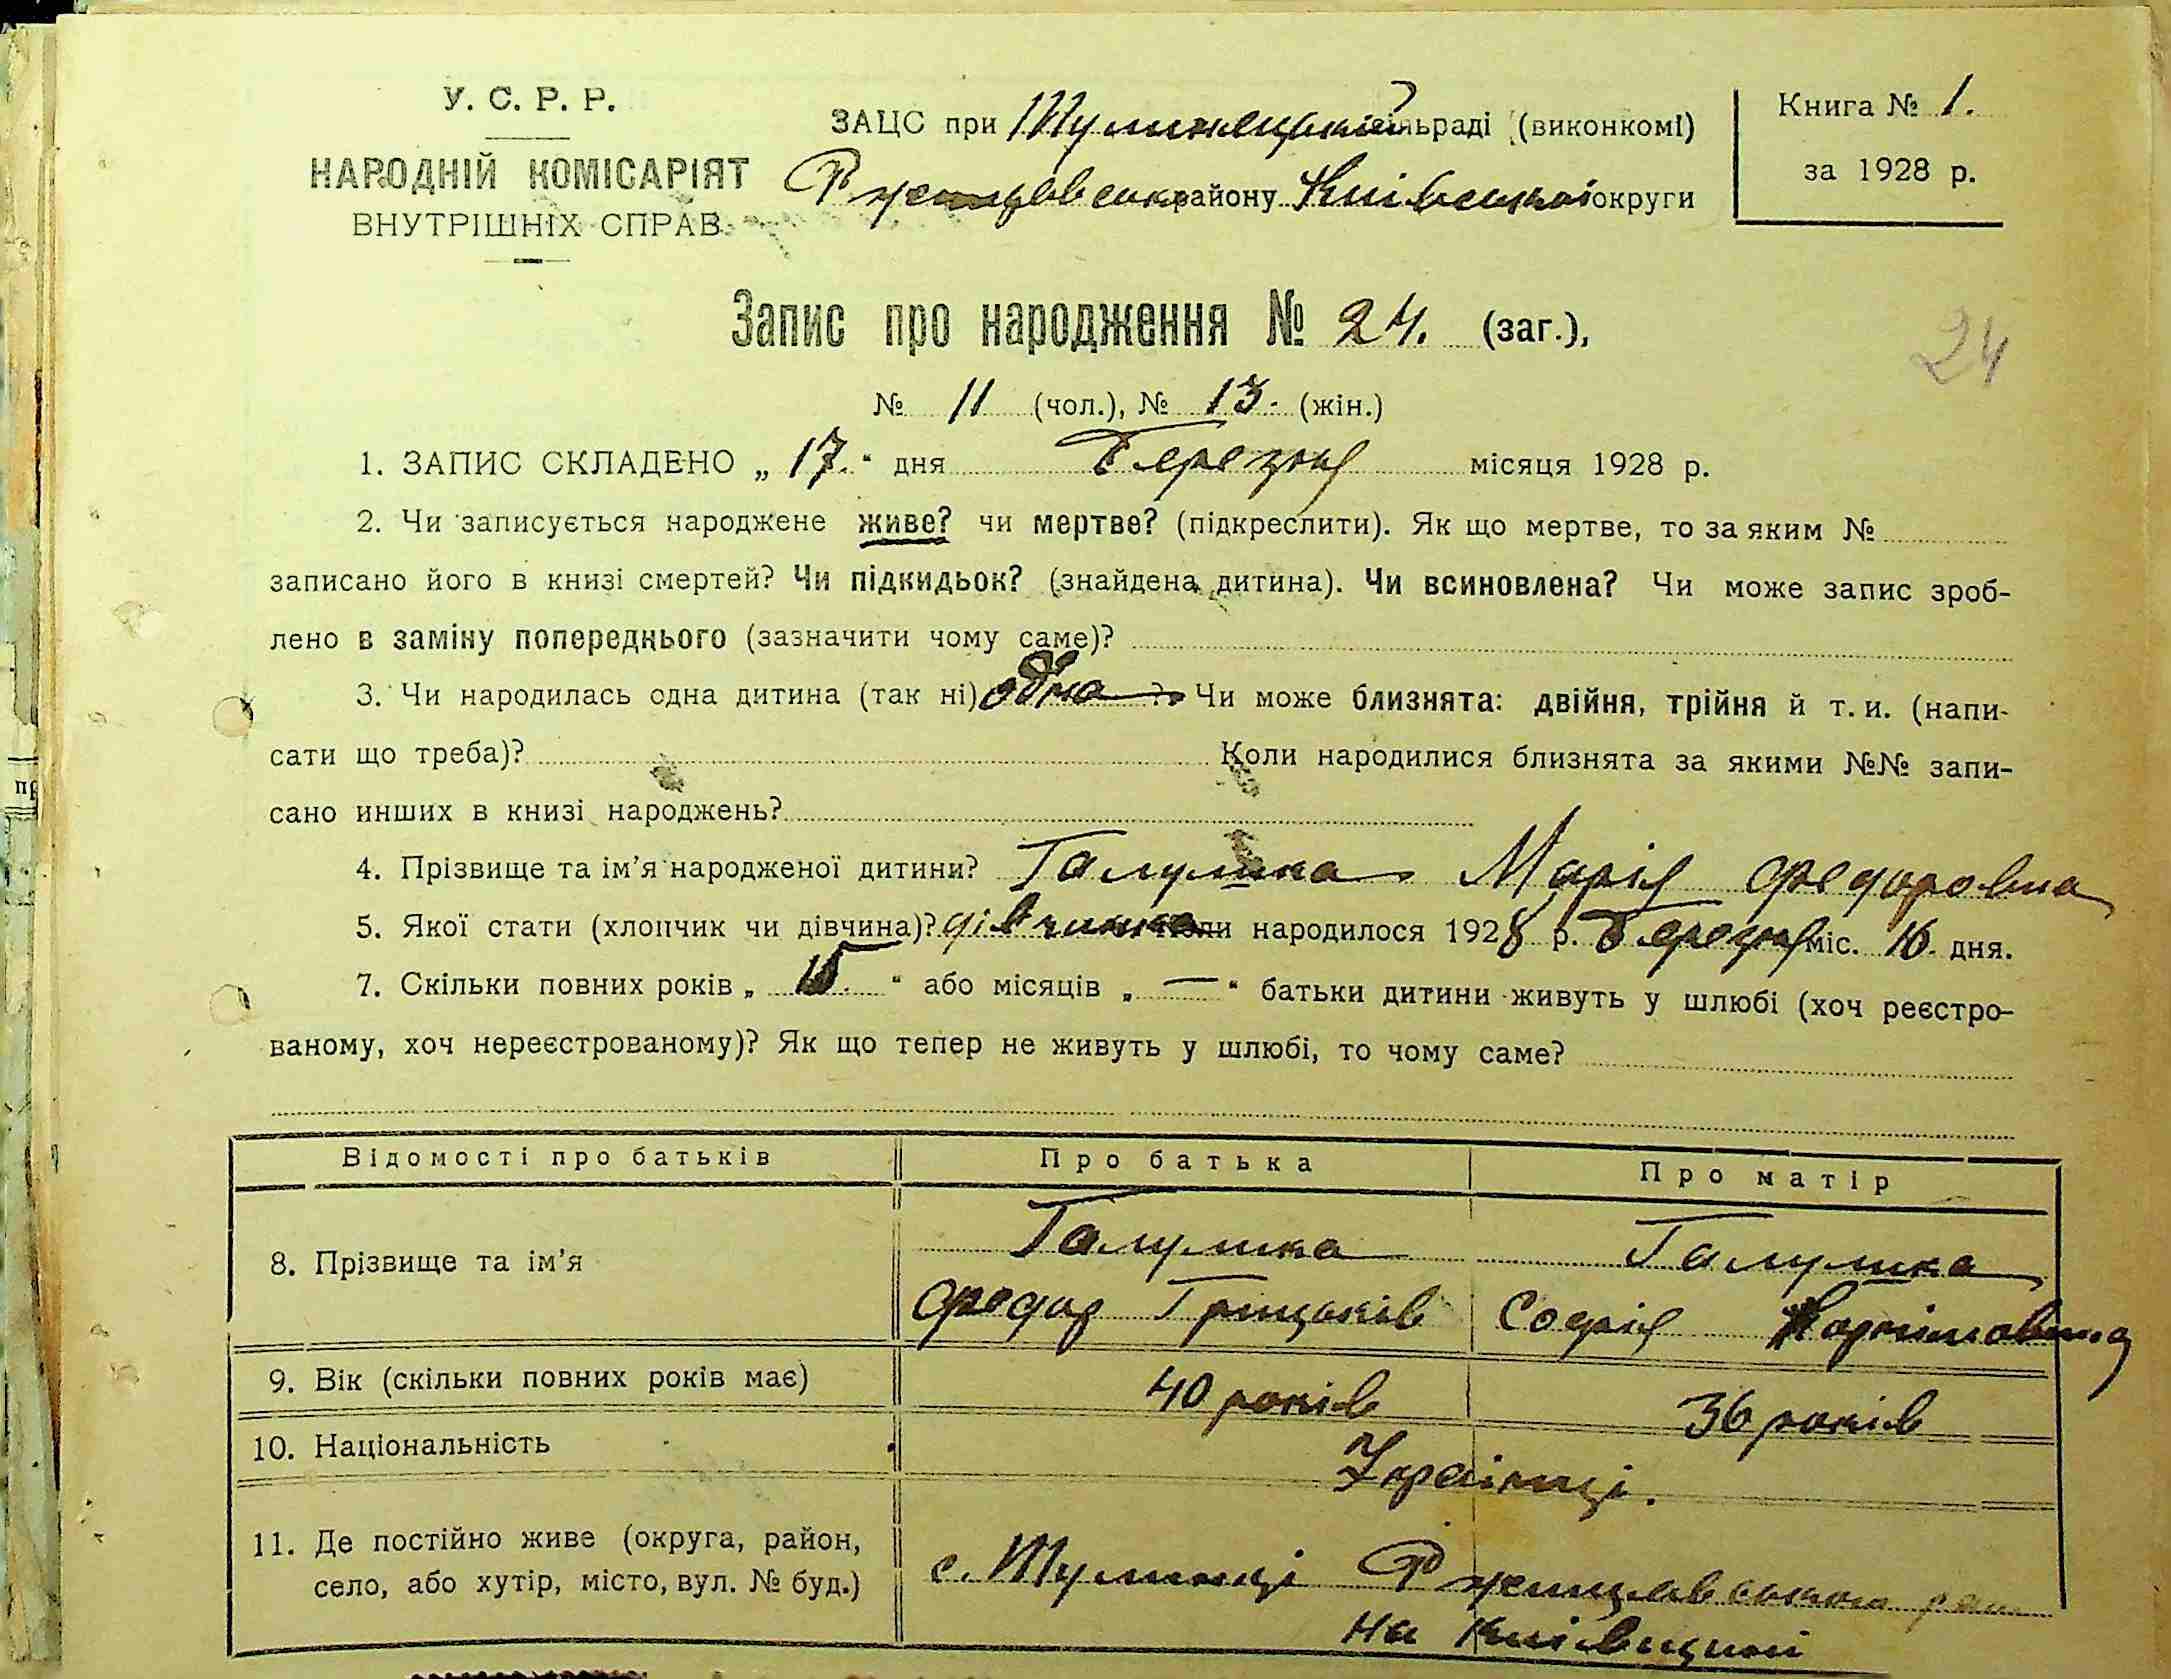 У. С. Р. Р.
НАРОДНІЙ КОМІСАРІЯТ
ВНУТРІШНІХ СПРАВ
ЗАЦС при Тулинецькій сільраді (виконкомі)
Ржищевськ району Київської округи
Книга № 1.
за 1928 р.
Запис про народження № 24. (заг.),
24
№ 11 (чол.), № 13. (жін.)
1. ЗАПИС СКЛАДЕНО „ 17. “ дня Березня місяця 1928 р.
2. Чи записується народжене живе? чи мертве? (підкреслити). Як що мертве, то за яким №
записано його в книзі смертей? Чи підкидьок? (знайдена дитина). Чи всиновлена? Чи може запис зроб-
лено в заміну попереднього (зазначити чому саме)?
3. Чи народилась одна дитина (так ні) одна ? Чи може близнята: двійня, трійня й т. и. (напи-
сати що треба)? Коли народилися близнята за якими №№ запи-
сано инших в книзі народжень?
4. Прізвище та ім’я народженої дитини? Галушка Марія Федоровна
5. Якої стати (хлопчик чи дівчина)? дівчинка Коли народилося 1928 р. Березня міс. 16. дня.
7. Скільки повних років „ 15. “ або місяців „ — “ батьки дитини живуть у шлюбі (хоч реєстро-
ваному, хоч нереєстрованому)? Як що тепер не живуть у шлюбі, то чому саме?
Відомості про батьків Про батька Про матір
8. Прізвище та ім’я Галушка Галушка
Федор Грицьків Софія
9. Вік (скільки повних років має) 40 років 36 років
10. Національність Українці.
11. Де постійно живе (округа, район,
село, або хутір, місто, вул. № буд.)
с. Тулинці Ржищевського рай.
на Київщині